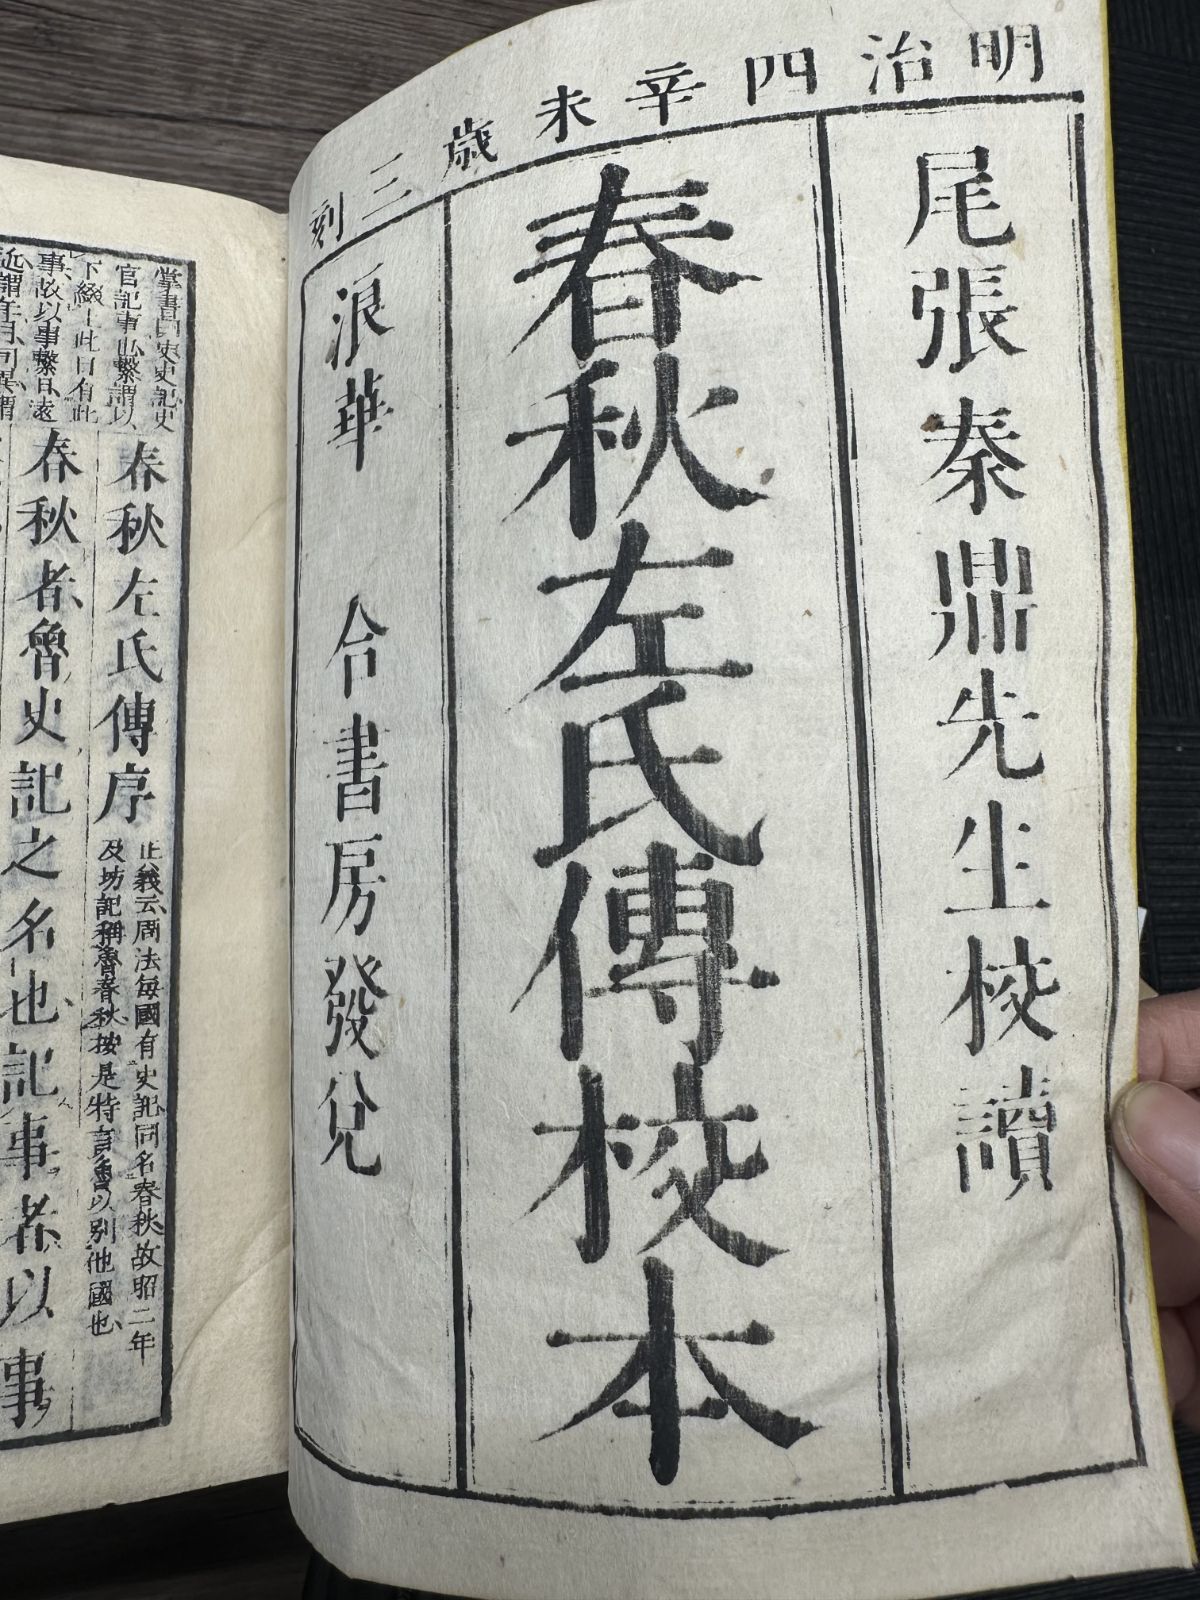 明治四辛未歳三刻
尾張秦鼎先生校讀
春秋左氏傳校本
浪華 合書房發兌
掌書曰史史記史
官記事也繫謂以
下綴上此日有此
事故以事繫日遠
近謂年月同異謂
春秋左氏傳序
正義云周法每國有史記同名春秋故昭二年
及坊記稱魯春秋按是特言魯以別他國也
春秋者魯史記之名也記事者以事